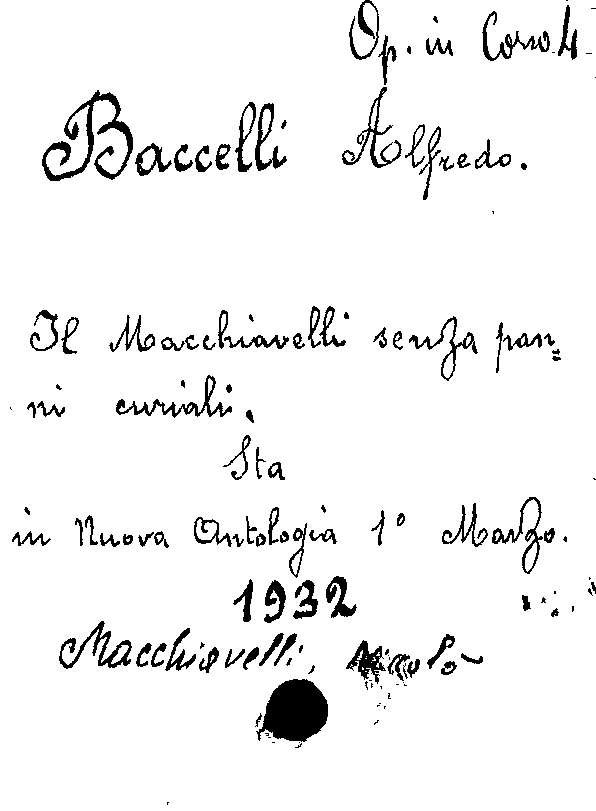 Op. in Corso 4
Baccelli Alfredo.
Il Macchiavelli senza pan=
ni curiali.
Sta
in Nuova Antologia 1° Marzo.
1932
Macchiavelli, Niccolò